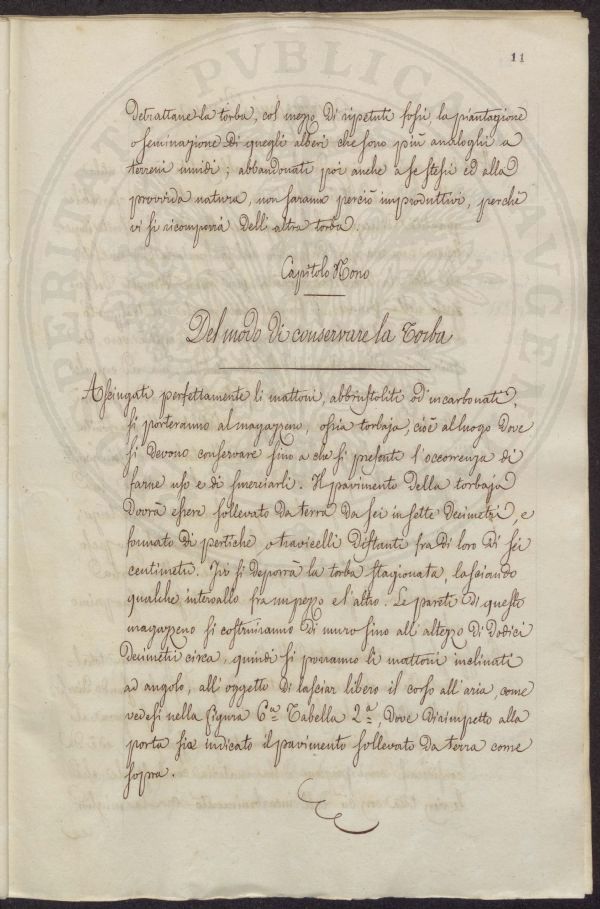 11
detrattane la torba, col mezzo di ripetuti fossi, la piantagione
o seminazione di quegli alberi che sono più analoghi a
terreni umidi; abbandonati poi anche a se stessi ed alla
provvida natura, non saranno perciò improduttivi, perchè
vi si ricomporrà dell'altra torba.
Capitolo Nono
Del modo di conservare la Torba
Assiugati perfettamente li mattoni, abbrustoliti od incarbonati,
si porteranno al magazzeno, ossia torbaja, cioè al luogo dove
si devono conservare sino a che si presenti l'occorrenza di
farne uso e di smerciarli. Il pavimento della torbaja
dovrà essere sollevato da terra da sei in sette decimetri, e
formato di pertiche o travicelli distanti fra di loro di sei
centimetri. Ivi si deporrà la torba stagionata, lasciando
qualche intervallo fra un pezzo e l'altro. Le pareti di questo
magazzeno si costruiranno di muro sino all'altezza di dodici
decimetri circa, quindi si porranno li mattoni inclinati
ad angolo, all'oggetto di lasciar libero il corso all'aria, come
vedesi nella figura 6ª Tabella 2ª, dove dirimpetto alla
porta sia indicato il pavimento sollevato da terra come
sopra.